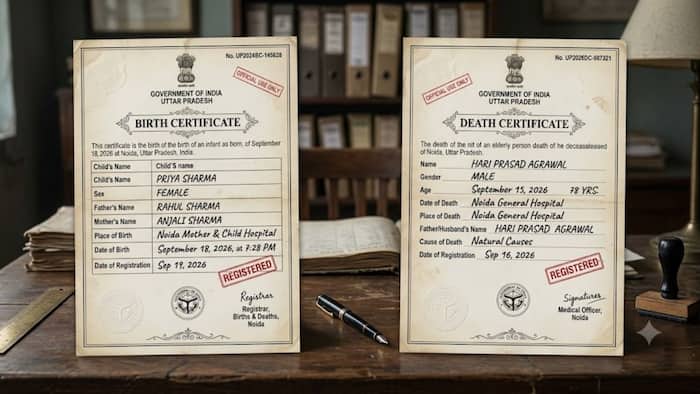 No. UP2024BC-145628
OFFICIAL USE ONLY
GOVERNMENT OF INDIA
UTTAR PRADESH
BIRTH CERTIFICATE
This certificate is the birth of the birth of an infant as born, of September
18, 2026 at Noida, Uttar Pradesh, India.
Child's Name Child'S name
Child's Name PRIYA SHARMA
Sex FEMALE
Father's Name RAHUL SHARMA
Mother's Name ANJALI SHARMA
Place of Birth Noida Mother & Child Hospital
Date of Birth September 18, 2026, at 7:28 PM
Date of Registration Sep 19, 2026
REGISTERED
Registrar
Registrar,
Births & Deaths,
Noida
No. UP2026DC-987321
OFFICIAL USE ONLY
GOVERNMENT OF INDIA
UTTAR PRADESH
DEATH CERTIFICATE
The death of the nit of an elderly person death of he deceaseleased
of Noida, Uttar Pradesh.
Name HARI PRASAD AGRAWAL
Gender MALE
Age September 15, 2026 78 YRS.
Date of Death Noida General Hospital
Place of Death Noida General Hospital
Father/Husband's Name HARI PRASAD AGRAWAL
Cause of Death Natural Causes
Date of Registration Sep 16, 2026
REGISTERED
Signatures
Medical Officer,
Noida